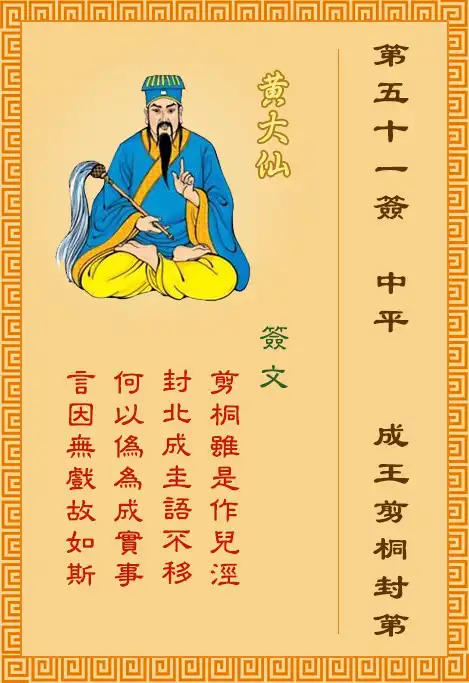 第五十一簽 中平 成王剪桐封第
黄大仙
簽文
剪桐雖是作兒涇
封北成圭語不移
何以偽為成實事
言因無戲故如斯